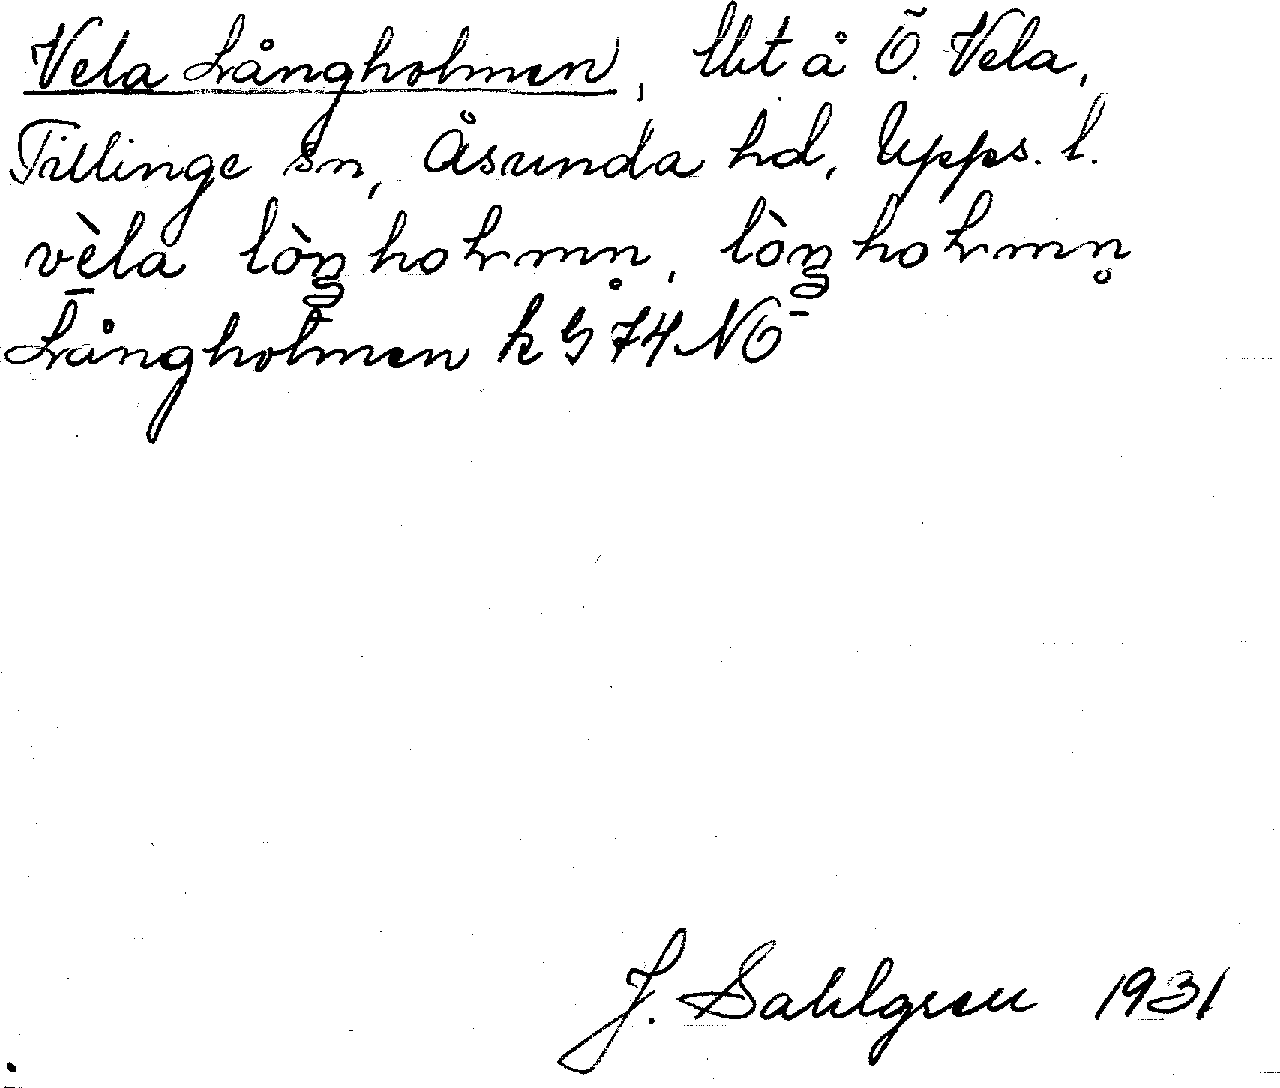 Vela Långholmen, lht å Ö. Vela,
Tillinge sn, Åsunda hd, Upps. l.
vèla lòŋholmn̥, lòŋholmn̥
Långholmen k G 74 NÖ
J. Sahlgren 1931